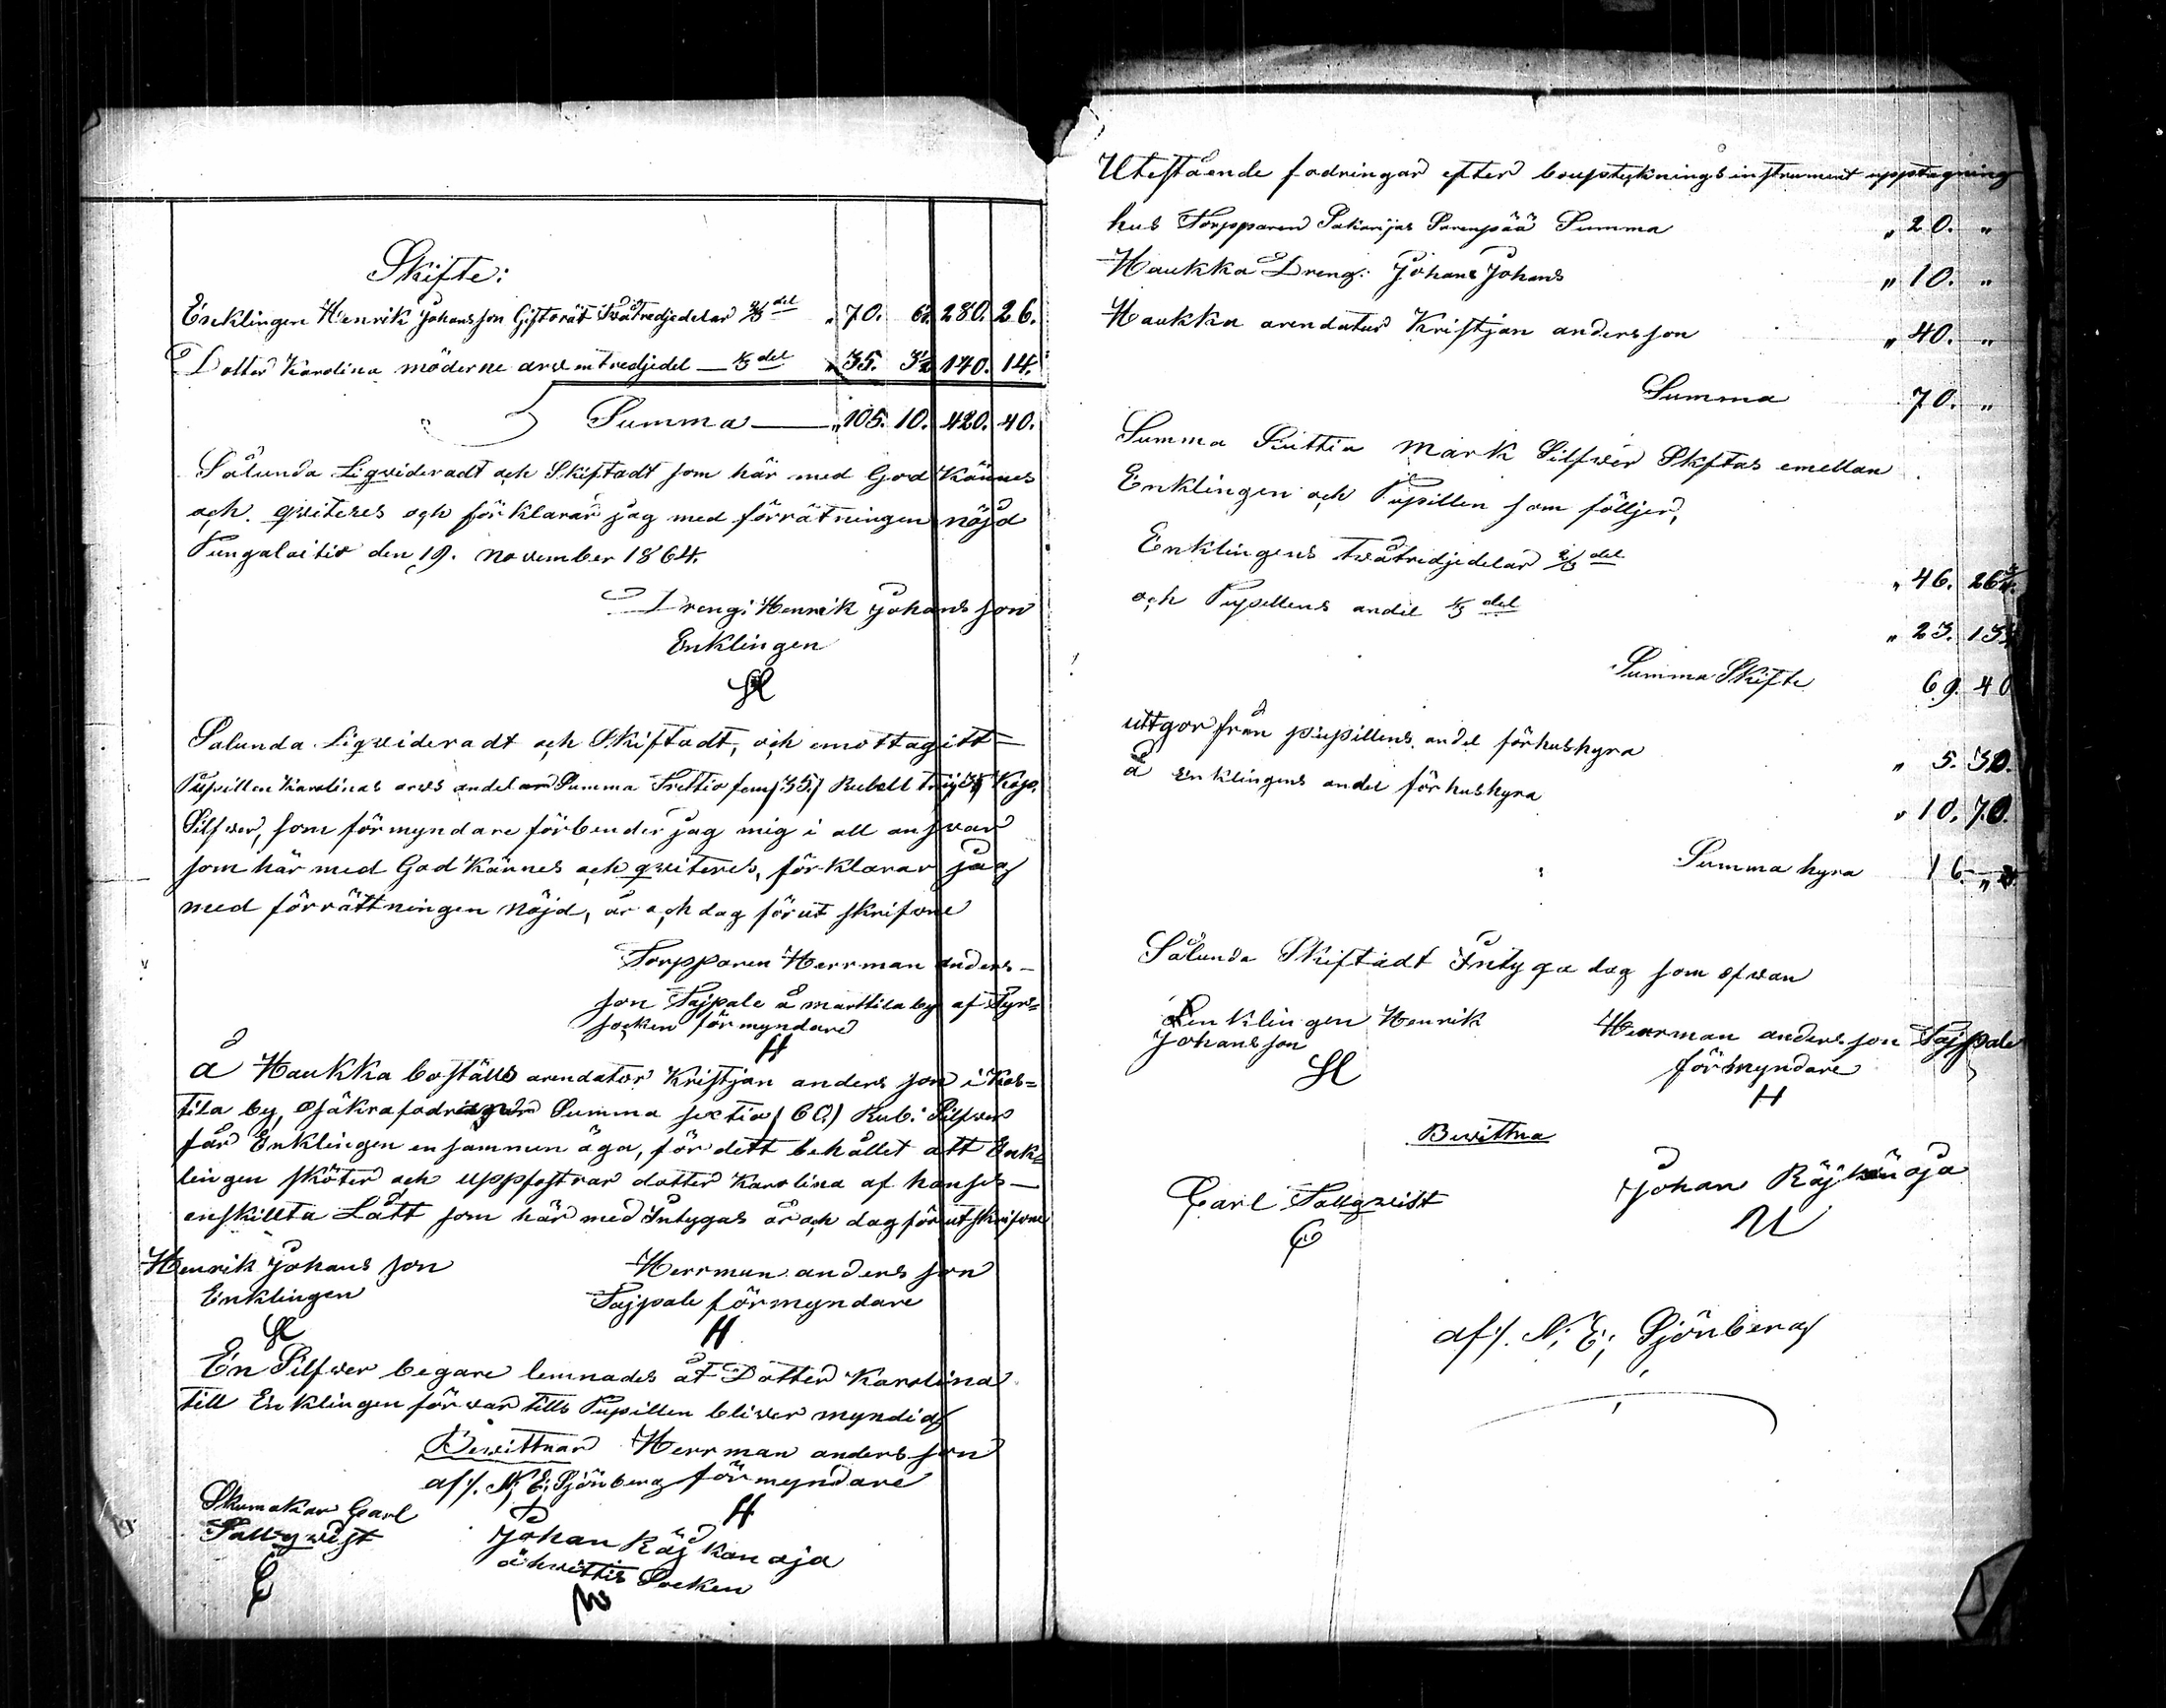 Skifte:
Encklingen Henrik Johansson Giftorät Twåtredjedelar 2/3 del " 70. 6 1/2 280. 26.
Dotter Karolina möderne arv en tredjedel — 1/3 del " 35. 3 1/2 140. 14.
Summa — " 105. 10. 420. 40.
Sålunda Liqvideradt och Skiftadt som här med God Kännes
och qviteres och förklarar jag med förrätningen nöjd
Pungalaitio den 19. november 1864.
Dreng: Henrik Johansson
Enklingen
Salunda Liqvideradt och Skiftadt, och emottagitt
Pupillen Karolinas arvs andel Summa Trettio fem /35./ Rubell Kop.
Silfwer, som förmyndare förbinder jag mig i all answar
som här med God Kännes och qviteres, förklarar jag
med förrättningen nöjd, år och dag förut skrifwne
Torpparen Herrman anders-
son Sajpale å marttila by af Tyrs=
socken förmyndare
H
å Haukka boställs arendator Kristjan andersson i Kos=
tila by, osäkra fodringar Summa sextio /60./ Rub: Silfwer
får Enklingen ensammen äga, för dett behållet att Enk=
lingen sköter och uppfostrar dotter Karolina af hanses—
enskillta Lått som här med Intygas år och dag förutskrifwne
Henrik Johansson Herrman andersson
Enklingen Sajpale förmyndare
H
En Silfwer begare lemnades åt Dotter Karolina
till Enklingen förwar tills Pupillen bliwer myndig
Bewittnar Herrman andersson
af/. N: E: Sjönberg förmyndare
H
Skumakar Carl
Sallqwist
C
Johan Räjkanoja
Socken
Utestående fodringar efter bouptekningsinstrument upptagning
hus Torpparen Sakarijas Sarenpää Summa " 20. "
Haukka Dreng: Johan Johans " 10. "
Haukka arendatur Kristjan andersson " 40. "
Summa 70. "
Summa Siuttio Mark Silfwer Skftas emellan
Enklingen och Pupillen som följjer,
Enklingens twåtredjedelar 2/3 del " 46. 26 3/4.
och Pupillens andel 1/3 del " 23. 13
Summa Skifte 69. 40
uttgor från pupillens andel för hushyra " 5. 30.
å Enklingens andel för hushyra " 10. 70.
Summa hyra 16. "
Sålunda Skiftadt Intyga dag som ofwan
Enklingen Henrik
Johansson
Herrman andersson Sajpale
förmyndare
H
Bewittna
Carl Sallqwist
C
Johan Räjkänoja
af/. N: E: Sjönberg